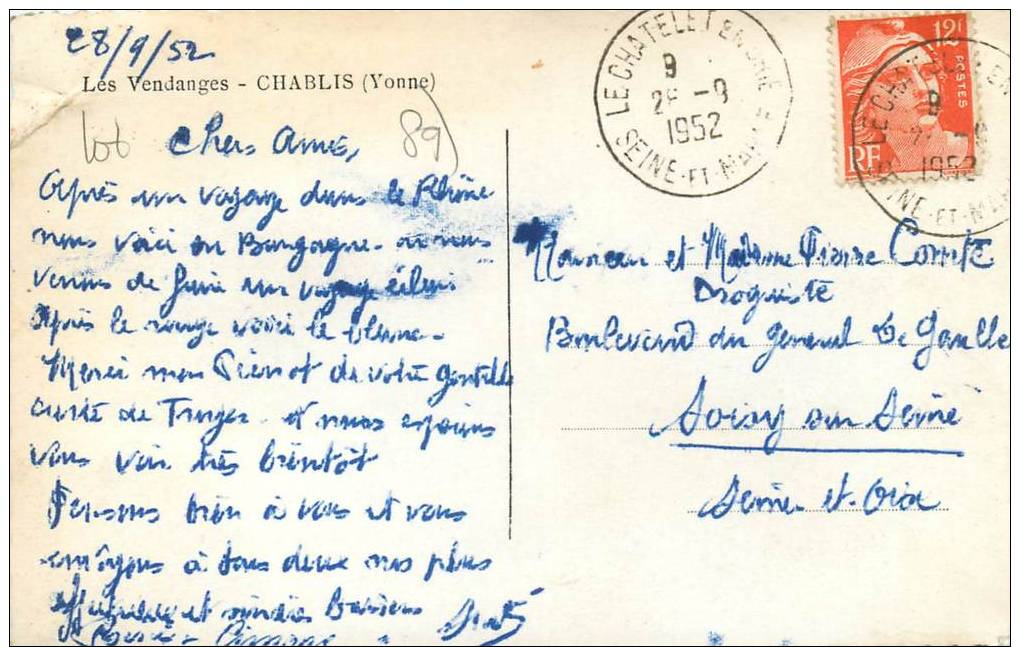 28/9/52
Les Vendanges - CHABLIS (Yonne)
lot
89
Chers Amis,
Après un voyage dans le Rhône
nous voici en Bourgogne - où nous
venons de faire un voyage éclair
Après le rouge voici le blanc -
Merci mon Pierrot de votre gentille
carte de - et nous espérons
vous voir très bientôt
Pensons bien à vous et vous
envoyons à tous deux nos plus
et sincères Baisers
LE CHATELET EN BRIE
9
28 -9
1952
SEINE-ET-MARNE
12F
POSTES
RF
LE CHATELET EN
9
1952
SEINE-ET-MAR
Monsieur et Madame Pierre Comte
Droguiste
Boulevard du General De Gaulle
Soisy sur Seine
Seine et Oise